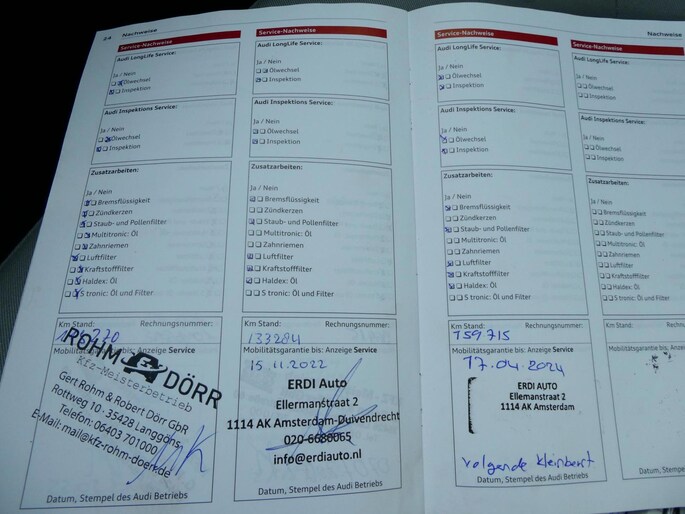 2-4 Nachweise
Service-Nachweise
Audi LongLife Service:
Ja / Nein
Ölwechsel
Inspektion
Audi Inspektions Service:
Ja / Nein
Ölwechsel
Inspektion
Zusatzarbeiten:
Ja / Nein
Bremsflüssigkeit
Zündkerzen
Staub- und Pollenfilter
Multitronic: Öl
Zahnriemen
Luftfilter
Kraftstofffilter
Haldex: Öl
S tronic: Öl und Filter
Km Stand: Rechnungsnummer:
Mobilitätsgarantie bis: Anzeige Service
ROHM DÖRR
Kfz-Meisterbetrieb
Gert Rohm & Robert Dörr GbR
Rottweg 10 · 35428 Langgöns
Telefon: 06403 701000
E-Mail: mail@kfz-rohm-doerr.de
Datum, Stempel des Audi Betriebs
Service-Nachweise
Audi LongLife Service:
Ja / Nein
Ölwechsel
Inspektion
Audi Inspektions Service:
Ja / Nein
Ölwechsel
Inspektion
Zusatzarbeiten:
Ja / Nein
Bremsflüssigkeit
Zündkerzen
Staub- und Pollenfilter
Multitronic: Öl
Zahnriemen
Luftfilter
Kraftstofffilter
Haldex: Öl
S tronic: Öl und Filter
Km Stand: Rechnungsnummer:
133284
Mobilitätsgarantie bis: Anzeige Service
15.11.2022
ERDI Auto
Ellermanstraat 2
1114 AK Amsterdam-Duivendrecht
020-6680065
info@erdiauto.nl
Datum, Stempel des Audi Betriebs
Service-Nachweise
Audi LongLife Service:
Ja / Nein
Ölwechsel
Inspektion
Audi Inspektions Service:
Ja / Nein
Ölwechsel
Inspektion
Zusatzarbeiten:
Ja / Nein
Bremsflüssigkeit
Zündkerzen
Staub- und Pollenfilter
Multitronic: Öl
Zahnriemen
Luftfilter
Kraftstofffilter
Haldex: Öl
S tronic: Öl und Filter
Km Stand: Rechnungsnummer:
159715
Mobilitätsgarantie bis: Anzeige Service
17.04.2024
ERDI AUTO
Ellemanstraat 2
1114 AK Amsterdam
volgende kleinberst
Datum, Stempel des Audi Betriebs
Nachweise
Service-Nachweise
Audi LongLife Service:
Ja / Nein
Ölwechsel
Inspektion
Audi Inspektions Service:
Ja / Nein
Ölwechsel
Inspektion
Zusatzarbeiten:
Ja / Nein
Bremsflüssigkeit
Zündkerzen
Staub- und Pollenfilter
Multitronic: Öl
Zahnriemen
Luftfilter
Kraftstofffilter
Haldex: Öl
S tronic: Öl und Filter
Km Stand: Rechnungsnummer:
Mobilitätsgarantie bis: Anzeige
Datum, Stempel des Audi Betriebs